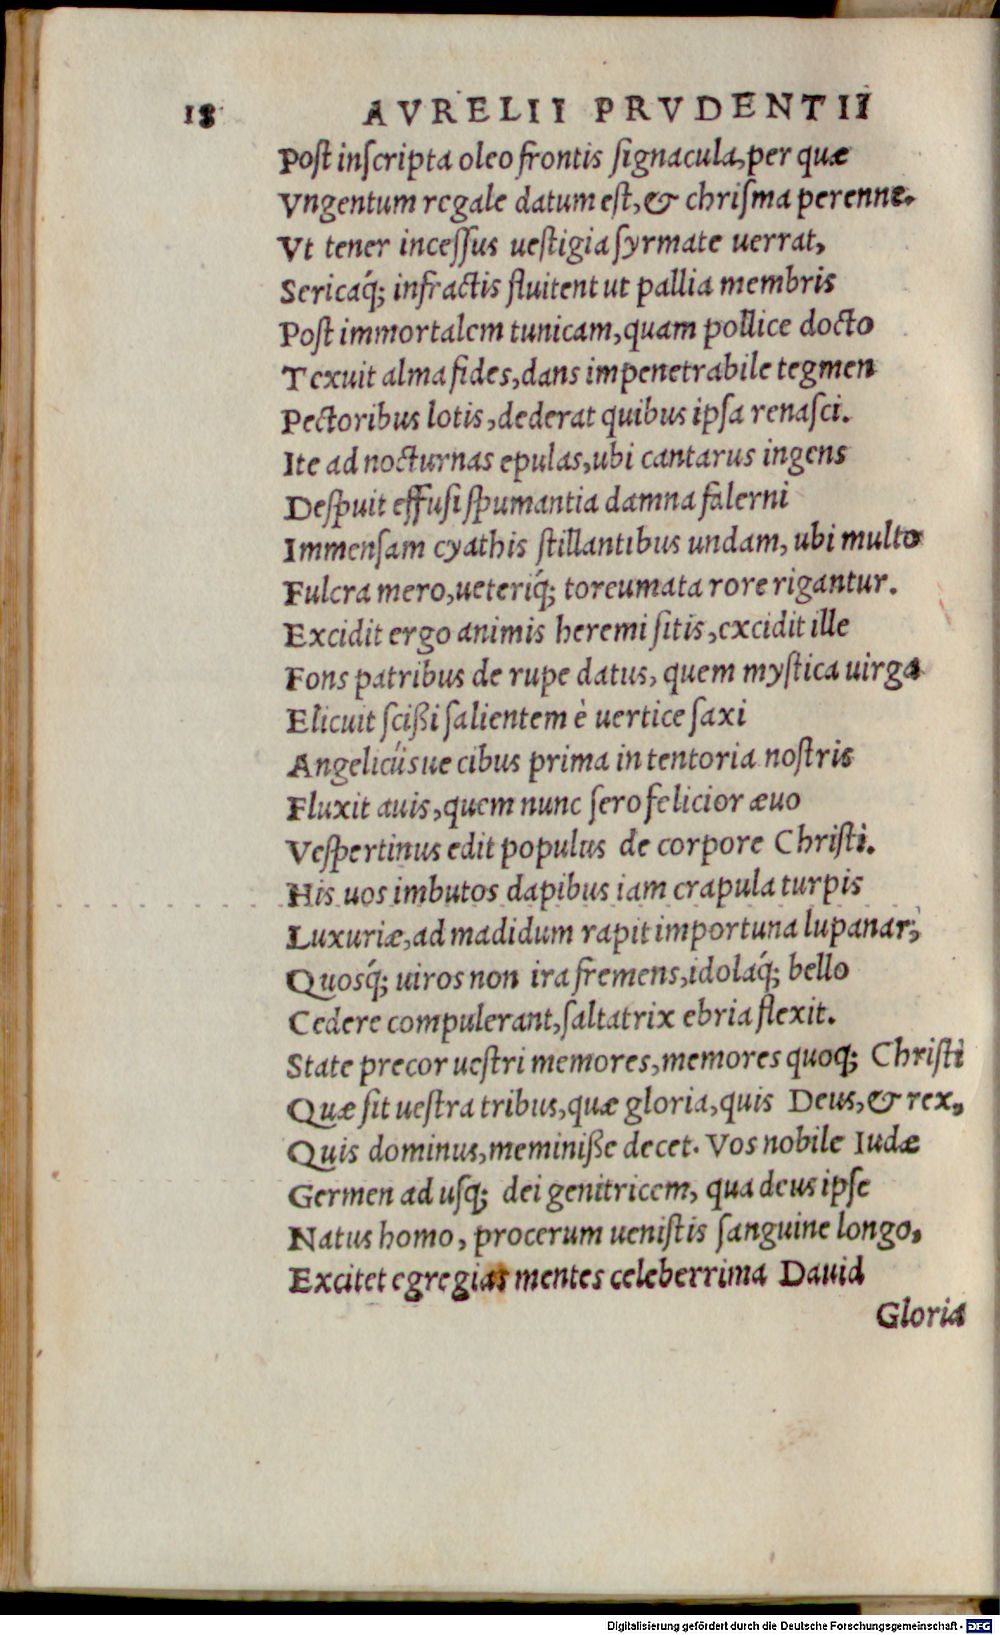 18 AVRELII PRVDENTII
Post inſcripta oleo frontis ſignacula, per quæ
Vngentum regale datum eſt, & chriſma perenne.
Vt tener inceſſus ueſtigia ſyrmate uerrat,
Sericaq́; infractis fluitent ut pallia membris
Poſt immortalem tunicam, quam pollice docto
Texuit alma fides, dans impenetrabile tegmen
Pectoribus lotis, dederat quibus ipſa renaſci.
Ite ad nocturnas epulas, ubi cantarus ingens
Deſpuit effuſi ſpumantia damna falerni
Immenſam cyathis ſtillantibus undam, ubi multo
Fulcra mero, ueteriq́; toreumata rore rigantur.
Excidit ergo animis heremi ſitis, excidit ille
Fons patribus de rupe datus, quem myſtica uirga
Elicuit ſcißi ſalientem è uertice ſaxi
Angelicúsue cibus prima in tentoria noſtris
Fluxit auis, quem nunc ſero felicior æuo
Veſpertinus edit populus de corpore Chriſti.
His uos imbutos dapibus iam crapula turpis
Luxuriæ, ad madidum rapit importuna lupanar;
Quosq́; uiros non ira fremens, idolaq́; bello
Cedere compulerant, ſaltatrix ebria flexit.
State precor ueſtri memores, memores quoq; Chriſti
Quæ ſit ueſtra tribus, quæ gloria, quis Deus, & rex,
Quis dominus, meminiße decet. Vos nobile Iudæ
Germen ad uſq; dei genitricem, qua deus ipſe
Natus homo, procerum ueniſtis ſanguine longo,
Excitet egregias mentes celeberrima Dauid
Gloria
Digitalisierung gefördert durch die Deutsche Forschungsgemeinschaft - DFG